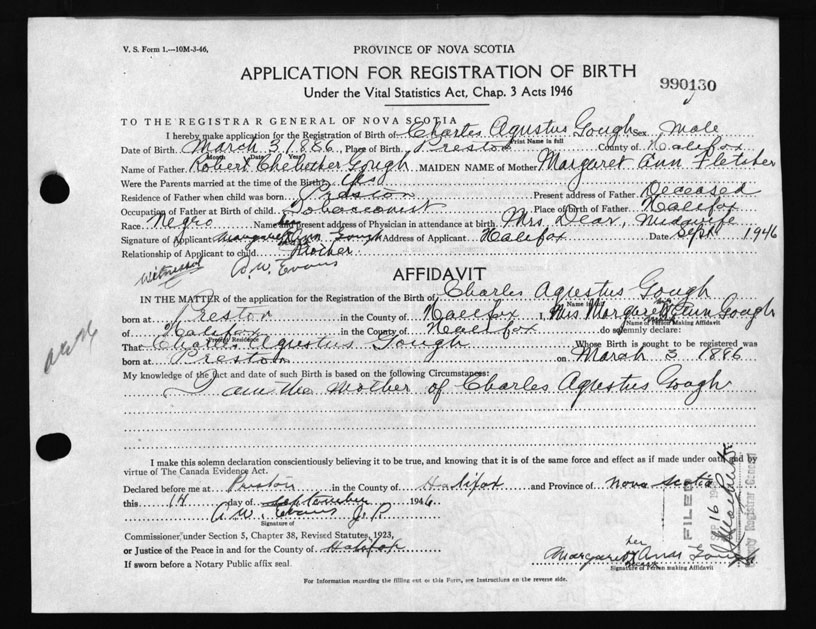 V. S. Form 1.—10M-3-46,
PROVINCE OF NOVA SCOTIA
APPLICATION FOR REGISTRATION OF BIRTH
Under the Vital Statistics Act, Chap. 3 Acts 1946
990130
TO THE REGISTRAR GENERAL OF NOVA SCOTIA
I hereby make application for the Registration of Birth of Charles Agustus Gough Sex Male
Print Name in full
Date of Birth March 3 1886 Place of Birth Preston County of Halifax
Month Date Year
Name of Father Robert Gough MAIDEN NAME of Mother Margaret Ann Fletcher
Were the Parents married at the time of the Birth? Yes
Residence of Father when child was born Preston Present address of Father Deceased
Occupation of Father at Birth of child Tobacconist Place of Birth of Father Halifax
Race Negro Name and present address of Physician in attendance at birth Mrs Dear, Midwife
Signature of Applicant Margaret Ann Gough Address of Applicant Halifax Date Sept 1946
her
Relationship of Applicant to child Mother
Witnessed A. W. Evans
AFFIDAVIT
IN THE MATTER of the application for the Registration of the Birth of Charles Agustus Gough
Name in full
born at Preston in the County of Halifax I, Mrs Margaret Ann Gough
Name of Person Making Affidavit
of Halifax in the County of Halifax do solemnly declare:
Present Residence
That Charles Agustus Gough Whose Birth is sought to be registered was
born at Preston on March 3 1886
My knowledge of the fact and date of such Birth is based on the following Circumstances:
I am the mother of Charles Agustus Gough
I make this solemn declaration conscientiously believing it to be true, and knowing that it is of the same force and effect as if made under oath and by
virtue of The Canada Evidence Act.
Declared before me at Preston in the County of Halifax and Province of Nova Scotia
this 14 day of September 1946
A. W. Evans J. P.
Signature of
Commissioner under Section 5, Chapter 38, Revised Statutes, 1923,
or Justice of the Peace in and for the County of Halifax
If sworn before a Notary Public affix seal.
FILED
SEP 16 1946
Deputy Registrar General
her
Margaret Ann Gough
mark
Signature of Person making Affidavit
For Information regarding the filling out of this Form, see Instructions on the reverse side.